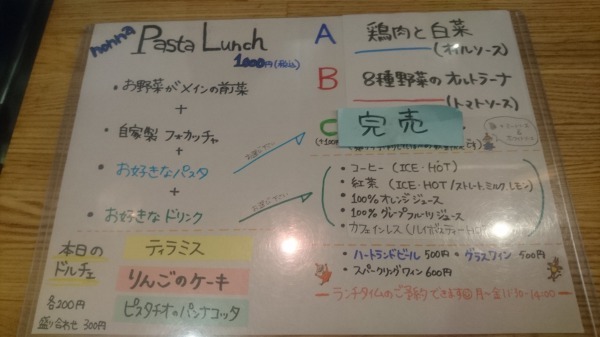 nonna Pasta Lunch
1000円(税込)
・お野菜がメインの前菜
+
・自家製 フォカッチャ
+
・お好きなパスタ
+
・お好きなドリンク
お選び下さい
お選び下さい
A 鶏肉と白菜
(オイルソース)
B 8種野菜のオルトラーナ
(トマトソース)
C 完売
・コーヒー (ICE・HOT)
・紅茶 (ICE・HOT/ストレート、ミルク レモン)
・100% オレンジジュース
・100% グレープフルーツジュース
・カフェインレス (ルイボスティー
・ハートランドビール 500円 ・グラスワイン 500円
・スパークリングワイン 600円
ランチタイムのご予約できます 月〜金 11:30-14:00
本日の
ドルチェ
各200円
盛り合わせ 300円
ティラミス
りんごのケーキ
ピスタチオのパンナコッタ